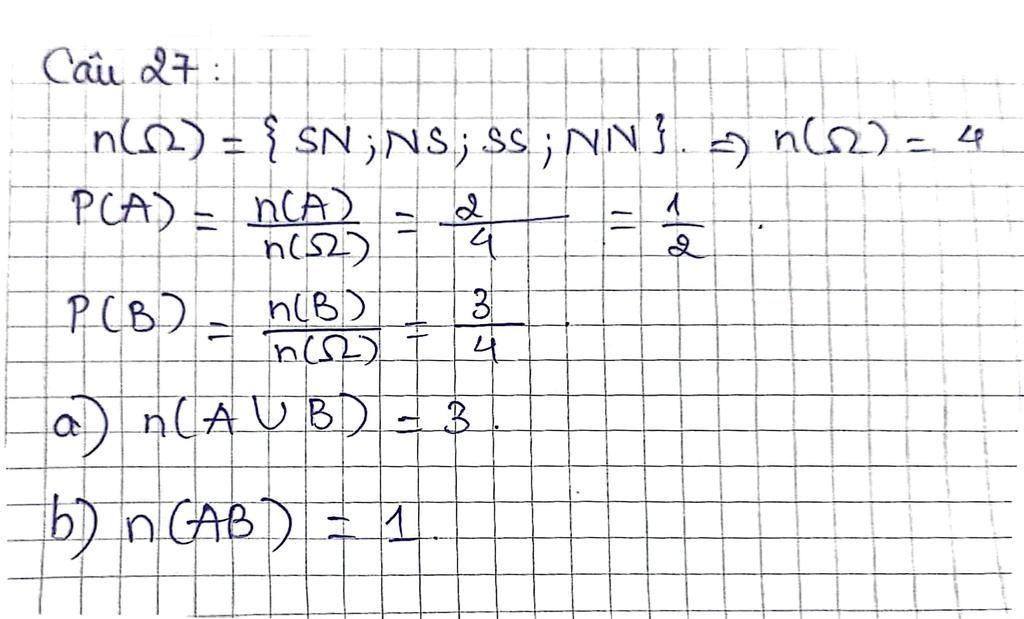 Câu 27:
n(Ω) = { SN ; NS ; SS ; NN }. => n(Ω) = 4
P(A) = n(A)/n(Ω) = 2/4 = 1/2.
P(B) = n(B)/n(Ω) = 3/4.
a) n(A ∪ B) = 3.
b) n(AB) = 1.